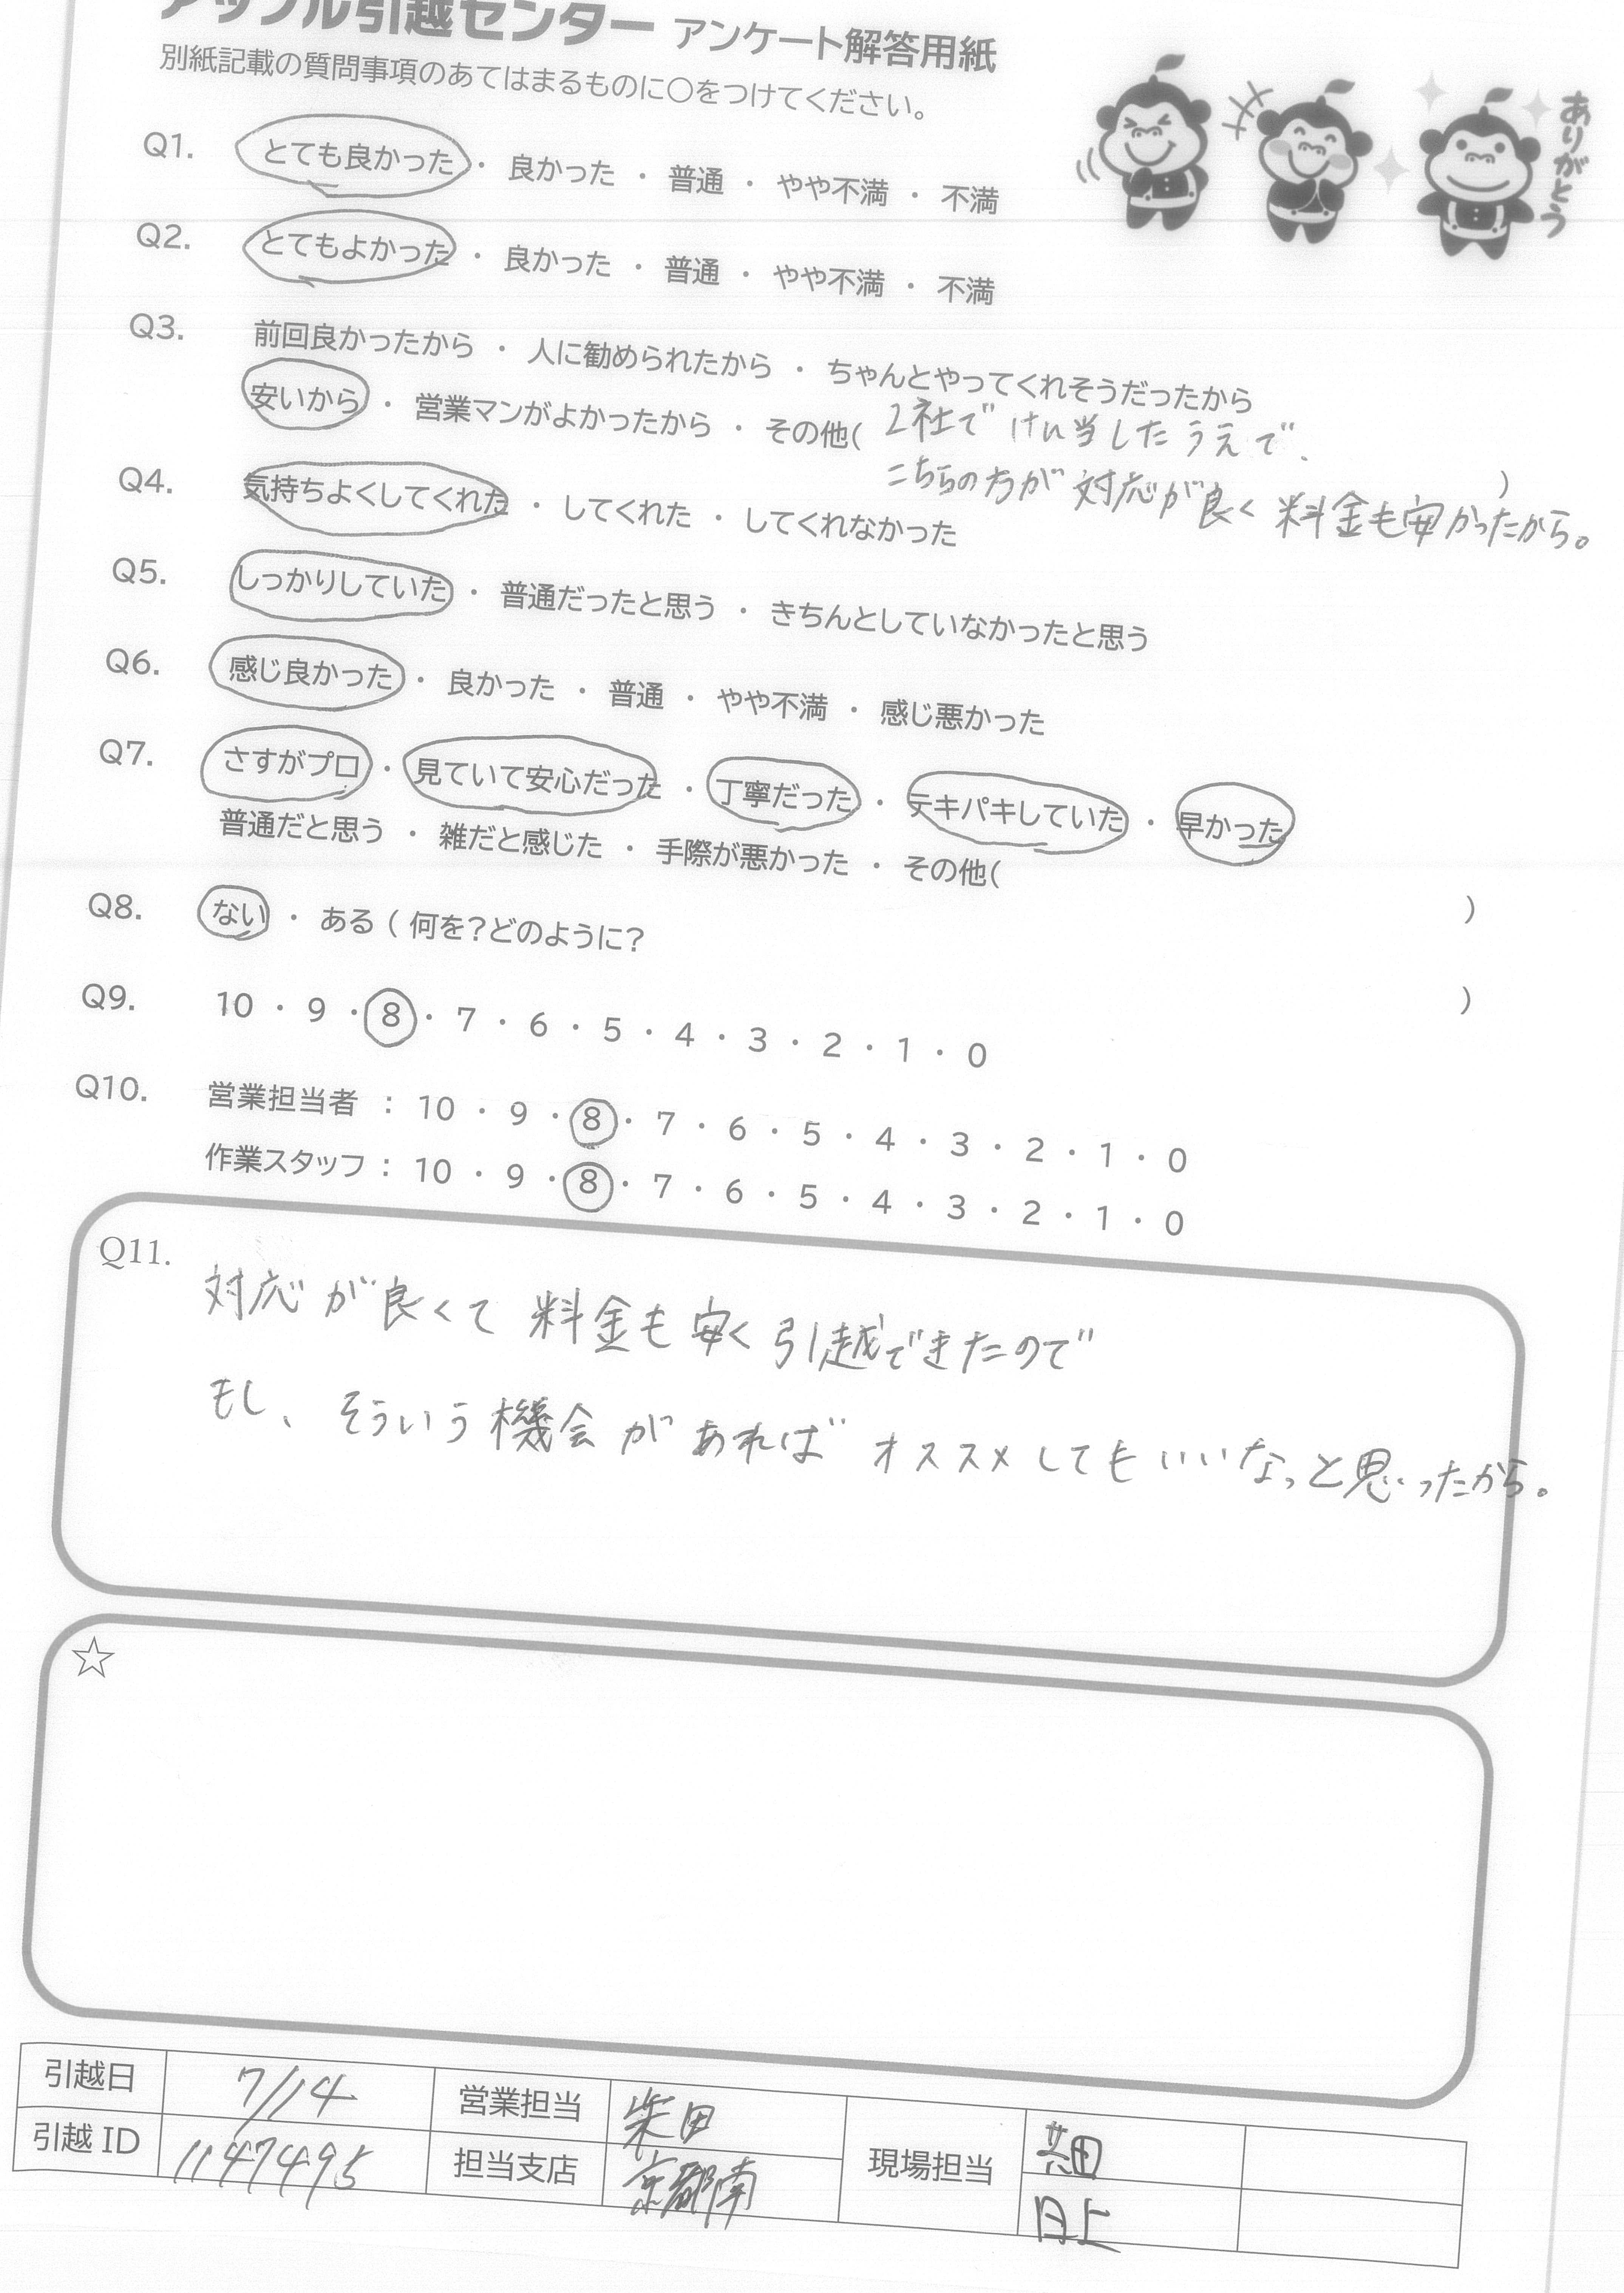 アップル引越センター アンケート解答用紙
別紙記載の質問事項のあてはまるものに〇をつけてください。
ありがとう
Q1. とても良かった ・ 良かった ・ 普通 ・ やや不満 ・ 不満
Q2. とてもよかった ・ 良かった ・ 普通 ・ やや不満 ・ 不満
Q3. 前回良かったから ・ 人に勧められたから ・ ちゃんとやってくれそうだったから
安いから ・ 営業マンがよかったから ・ その他( 2社で けん当した うえで、
こちらの方が 対応が良く 料金も安かったから。 )
Q4. 気持ちよくしてくれた ・ してくれた ・ してくれなかった
Q5. しっかりしていた ・ 普通だったと思う ・ きちんとしていなかったと思う
Q6. 感じ良かった ・ 良かった ・ 普通 ・ やや不満 ・ 感じ悪かった
Q7. さすがプロ ・ 見ていて安心だった ・ 丁寧だった ・ テキパキしていた ・ 早かった
普通だと思う ・ 雑だと感じた ・ 手際が悪かった ・ その他( )
Q8. ない ・ ある ( 何を?どのように? )
Q9. 10 ・ 9 ・ 8 ・ 7 ・ 6 ・ 5 ・ 4 ・ 3 ・ 2 ・ 1 ・ 0
Q10. 営業担当者 : 10 ・ 9 ・ 8 ・ 7 ・ 6 ・ 5 ・ 4 ・ 3 ・ 2 ・ 1 ・ 0
作業スタッフ : 10 ・ 9 ・ 8 ・ 7 ・ 6 ・ 5 ・ 4 ・ 3 ・ 2 ・ 1 ・ 0
Q11.
対応が良くて 料金も安く 引越できたので
もし、そういう機会があれば オススメしてもいいなっと思ったから。
☆
引越日 7/14 営業担当 柴田
引越 ID 1147495 担当支店 京都南 現場担当
日上